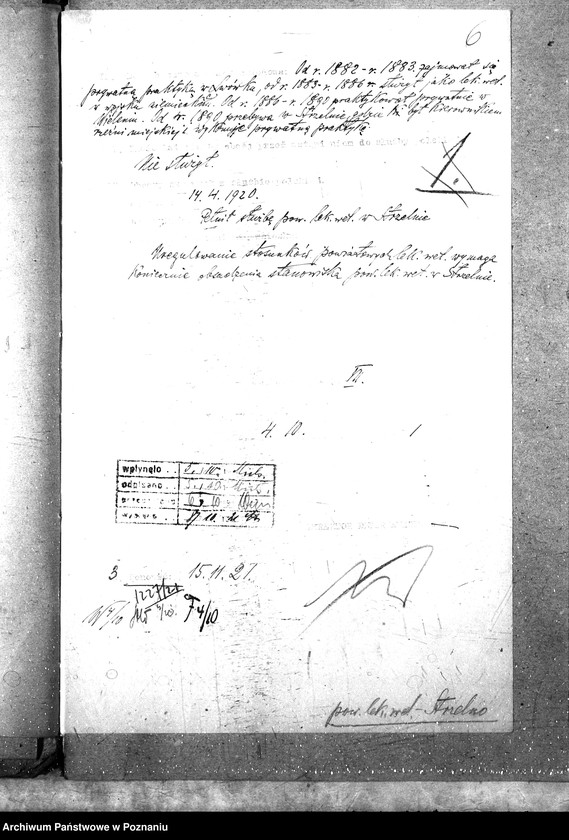 6
Od r. 1882 - r. 1883. zajmował się
prywatną praktyką w Lwówku, od r. 1883 - r. 1886 r. służył jako lek. wet.
w wojsku niemieckim. Od r. 1886 - r. 1890 praktykował prywatnie w
Wieleniu. Od r. 1890 przebywa w Strzelnie gdzie był kierownikiem
rzeźni miejskiej i wykonuje prywatną praktykę
Nie służył.
14. 4. 1920.
Pełnił służbę pow. lek. wet. w Strzelnie
Uregulowanie stosunków powiatowych lek. wet. wymaga
koniecznie obsadzenia stanowiska pow. lek. wet. w Strzelnie.
VII.
4. 10. 1
wpłynęło
odpisano
3 15. 11. 21.
1227/21
pow. lek. wet - Strzelno
Archiwum Państwowe w Poznaniu